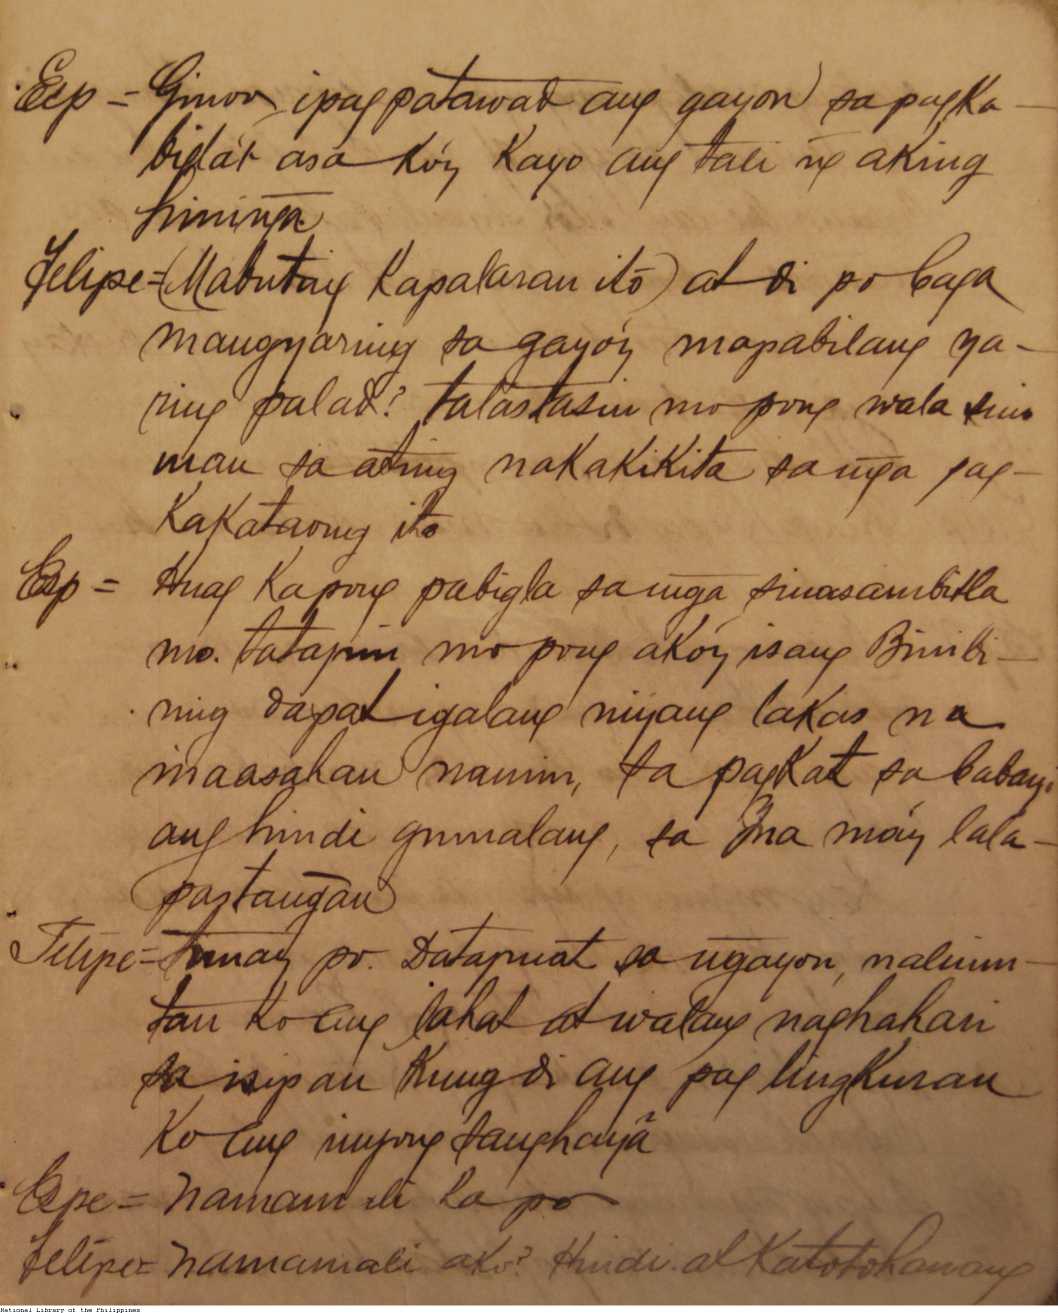 Esp = Ginoo, ipag patawad ang gayon sa pagka-
biglá't asa kóy kayo ang tali ñg aking
hininga
Felipe = (Mabuting kapalaran itó) at di po baga
mangyaring sa gayóy mapabilang ya-
ring palad? talastasin mo pong wala sino
man sa ating nakakikita sa mga pag-
kakataong ito
Esp = Huag ka pong pabigla sa mga sinasambitla
mo. tatapin mo pong akóy isang Binibi-
ning dapat igalang niyang lakas na
maasahan namin, sa pagkat sa babayi
ang hindi gumalang, sa Ina máy lala-
pastangan
Felipe = tunay po. Datapuat sa ngayon, nalimu-
tan ko ang lahat at walang naghahari
sa isip au kung di ang pag lingkuran
ko ang inyong sanghayã
Espe = namamali ka po
Felipe = namamali ako? Hindi. at katotohanang
National Library of the Philippines